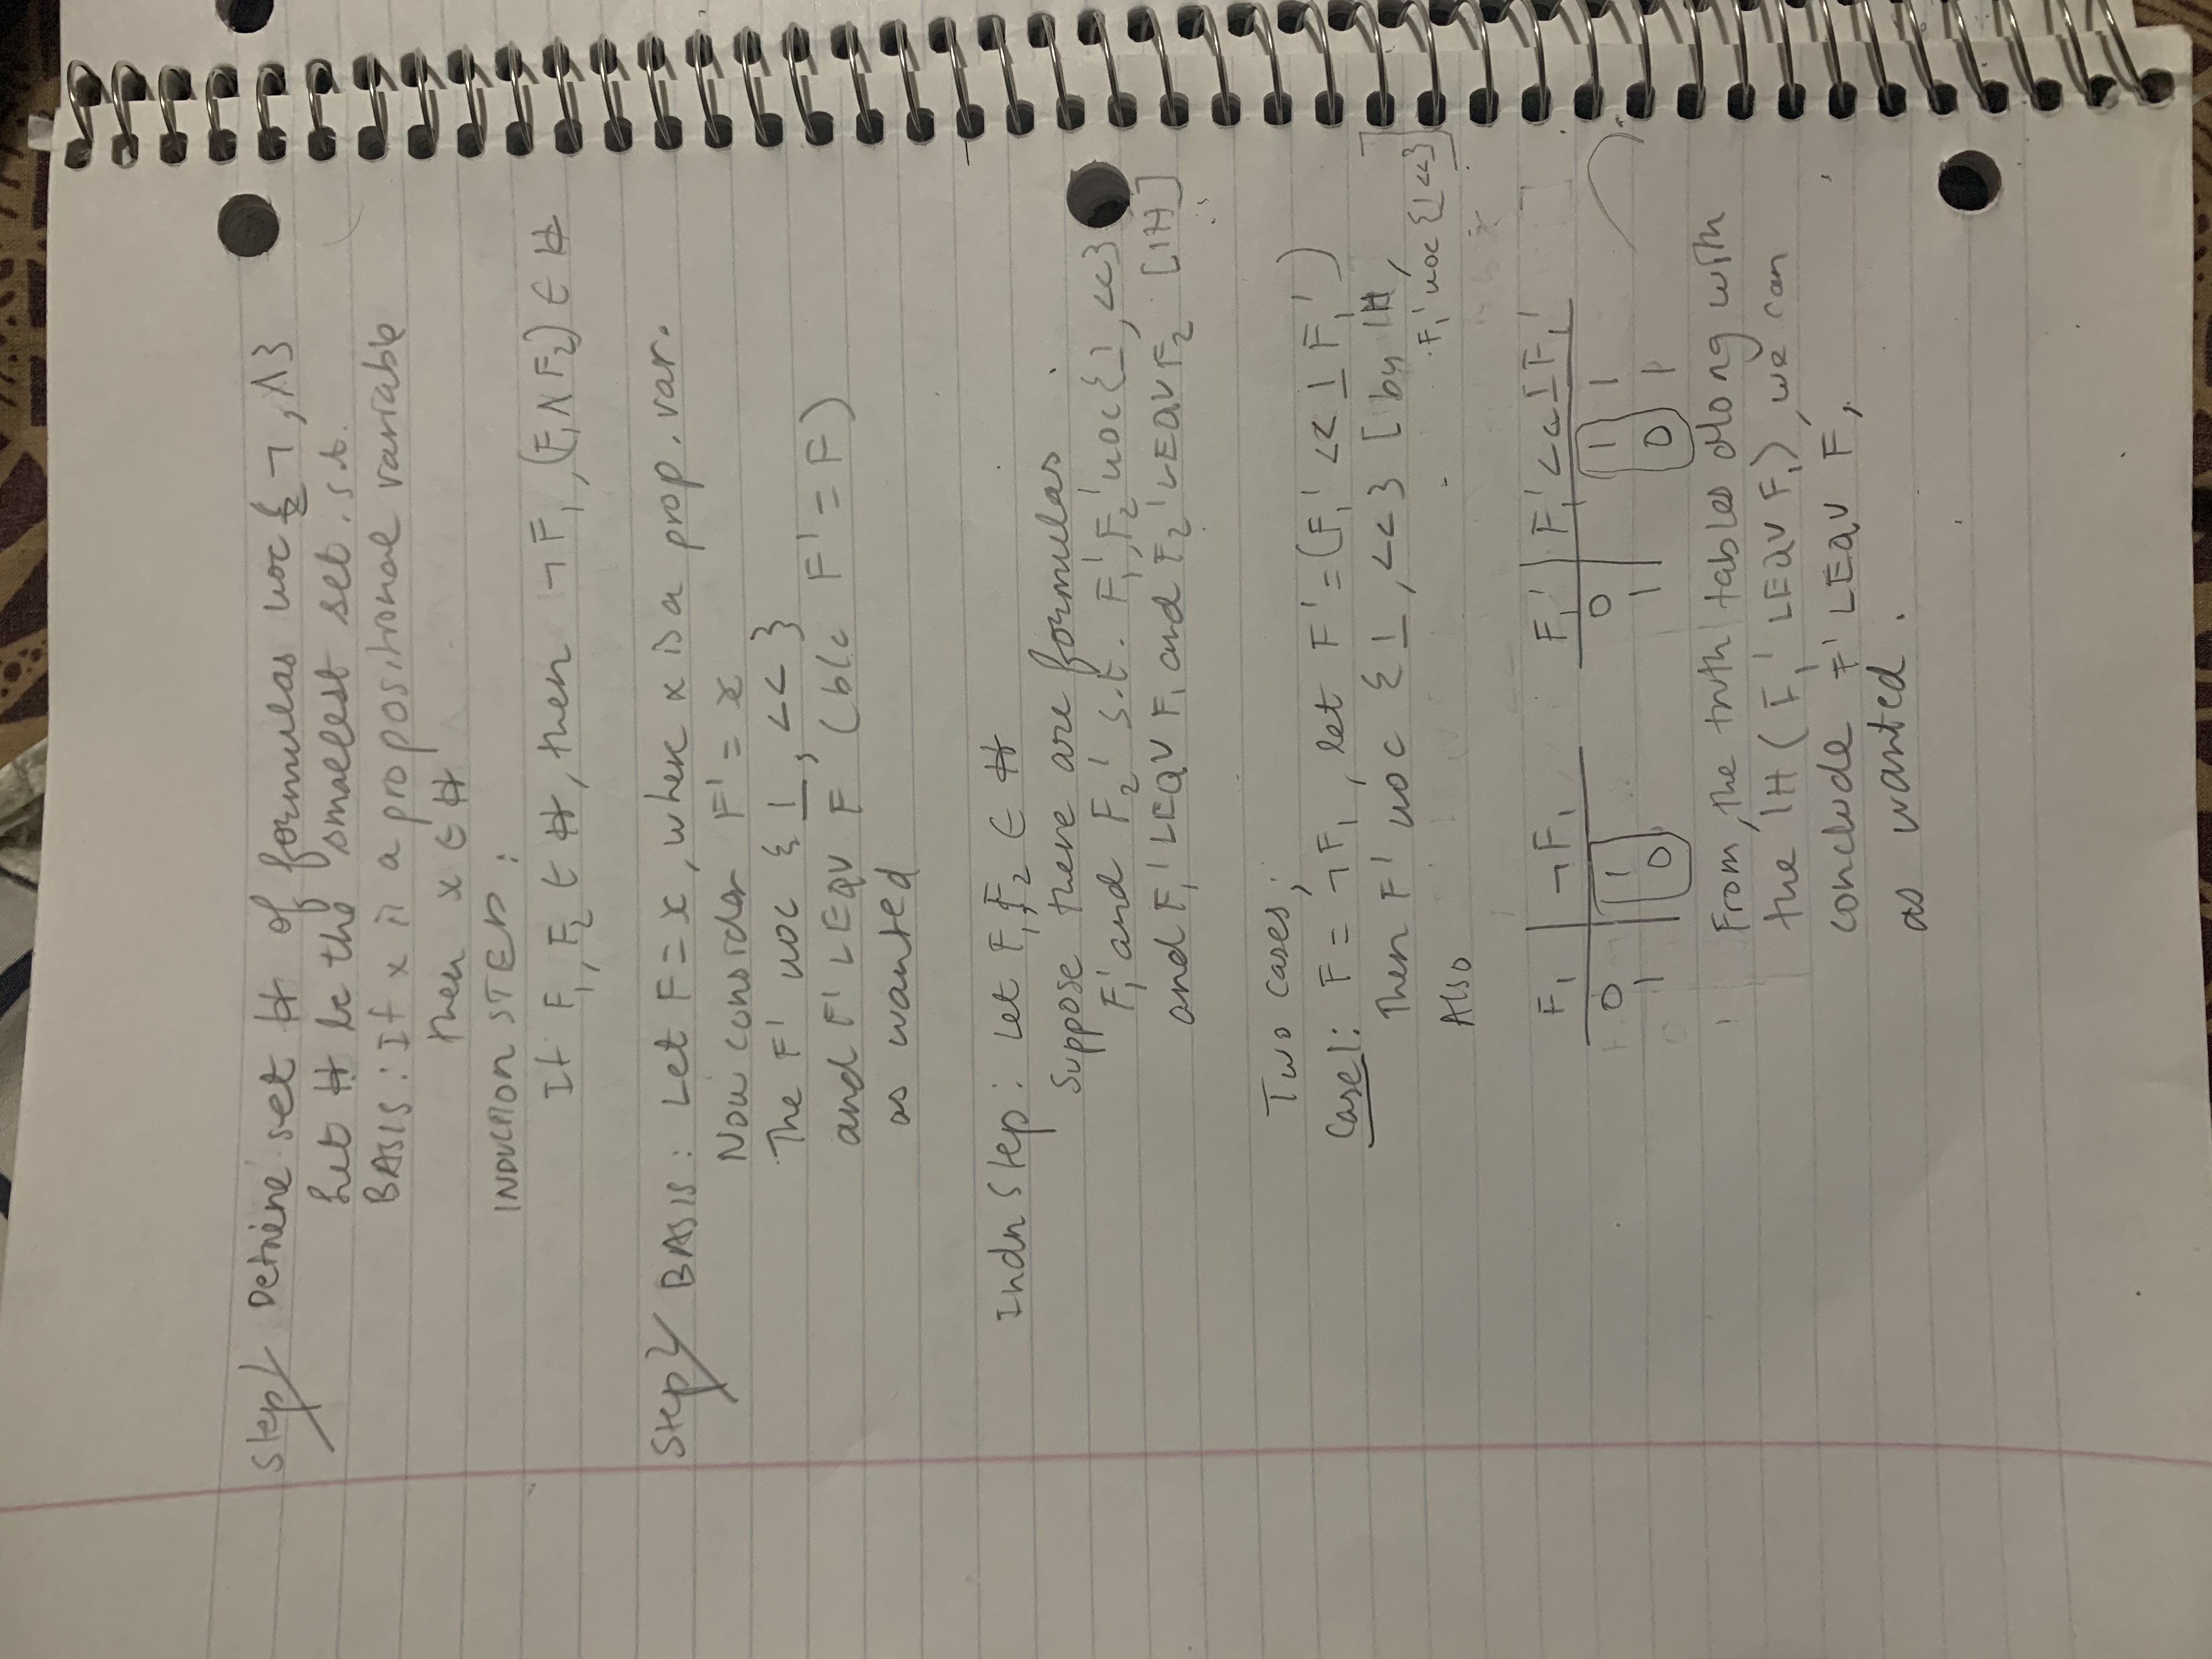 Step 1 Define set H of formulas uoc {¬, ∧}
Let H be the smallest set. s.t.
BASIS: If x is a propositional variable
then x ∈ H
INDUCTION STEP:
If F₁, F₂ ∈ H, then ¬F₁, (F₁∧F₂) ∈ H
Step 2 BASIS: Let F = x, where x is a prop. var.
Now consider F' = x
The F' uoc {⊥, <<}
and F' LEQV F (b/c F' = F)
as wanted
Indn Step: Let F₁, F₂ ∈ H
Suppose there are formulas
F₁' and F₂' s.t. F₁', F₂' uoc {⊥, <<}
and F₁' LEQV F₁ and F₂' LEQV F₂ [IH]
Two cases;
Case 1: F = ¬F₁, let F' = (F₁' << ⊥ F₁')
Then F' uoc {⊥, <<} [by IH,
F₁' uoc {⊥ <<}]
Also
F₁ | ¬F₁ F₁' | F₁' << ⊥ F₁'
0 | 1 0 | 1 1
1 | 0 1 | 0 1
From, the truth tables along with
the IH (F₁' LEQV F₁), we can
conclude F' LEQV F,
as wanted.